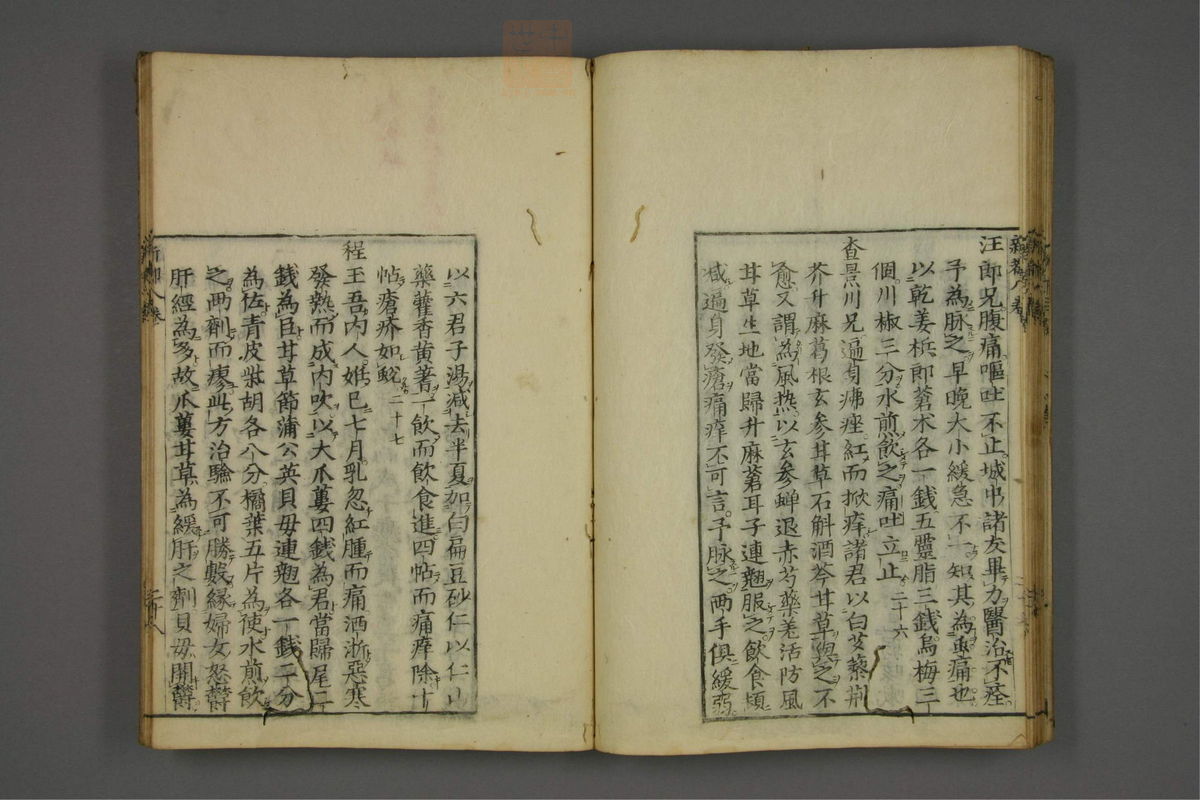 汪郎兄腹痛嘔吐不止城中諸友畢力醫治不痊
予為脉之早晚大小緩急不一知其為虫痛也
以乾姜梹郎蒼朮各一錢五靈脂三錢烏梅三
個川椒三分水煎飲之痛吐立止 二十六
查景川兄遍身痱痤紅而掀痒諸君以白芷蘂荆
芥升麻葛根玄参甘草石斛酒芩甘草與之不
愈又謂為風热以玄参蝉退赤芍藥羌活防風
甘草生地當歸升麻蒼耳子連翹服之飲食頓
减遍身發瘡痛痒不可言予脉之兩手俱緩弱
以六君子湯减去半夏加白扁豆砂仁以仁山
藥藿香黄蓍一飲而飲食進四帖而痛痒除十
帖瘡疥如蛻 二十七
程玉吾内人妊已七月乳忽紅腫而痛洒淅惡寒
發熱而成内吹以大瓜蔞四錢為君當歸尾二
錢為臣甘草節蒲公英貝母連翹各一錢二分
為佐青皮柴胡各八分橘葉五片為使水煎飲
之兩劑而瘳此方治驗不可勝數緣婦女怒欝
肝經為多故瓜蔞甘草為緩肝之劑貝母開欝